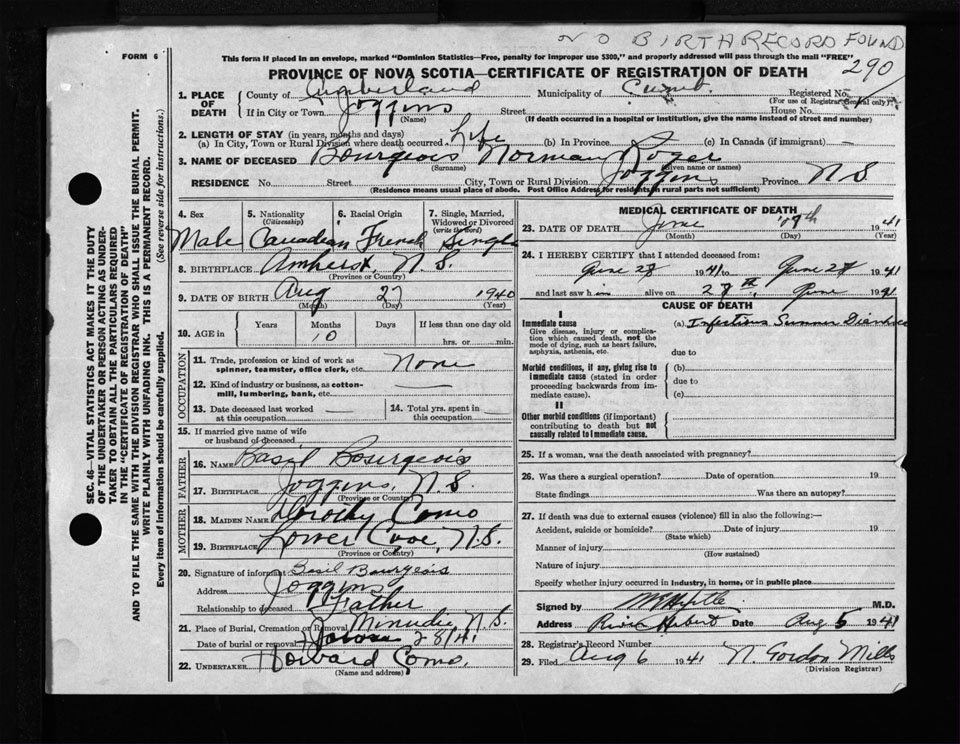 NO BIRTH RECORD FOUND
FORM 6
This form if placed in an envelope, marked "Dominion Statistics—Free, penalty for improper use $300," and properly addressed will pass through the mail "FREE"
290
PROVINCE OF NOVA SCOTIA—CERTIFICATE OF REGISTRATION OF DEATH
SEC. 46—VITAL STATISTICS ACT MAKES IT THE DUTY
OF THE UNDERTAKER OR PERSON ACTING AS UNDER-
TAKER TO OBTAIN ALL THE PARTICULARS REQUIRED
IN THE "CERTIFICATE OF REGISTRATION OF DEATH"
AND TO FILE THE SAME WITH THE DIVISION REGISTRAR WHO SHALL ISSUE THE BURIAL PERMIT.
WRITE PLAINLY WITH UNFADING INK. THIS IS A PERMANENT RECORD.
Every item of information should be carefully supplied. (See reverse side for instructions.)
1. PLACE OF DEATH County of Cumberland Municipality of Cumb. Registered No.
(For use of Registrar General only)
If in City or Town Joggins Street House No.
(Name) (If death occurred in a hospital or institution, give the name instead of street and number)
2. LENGTH OF STAY (in years, months and days)
(a) In City, Town or Rural Division where death occurred Life (b) In Province (c) In Canada (if immigrant) —
3. NAME OF DECEASED Bourgeois Norman Roger
(Surname) (Given name or names)
RESIDENCE No. Street City, Town or Rural Division Joggins Province N S
(Residence means usual place of abode. Post Office Address for residents in rural parts not sufficient)
4. Sex 5. Nationality (Citizenship) 6. Racial Origin 7. Single, Married, Widowed or Divorced (write the word)
Male Canadian French Single
8. BIRTHPLACE Amherst, N. S.
(Province or Country)
9. DATE OF BIRTH Aug 27 1940
(Month) (Day) (Year)
10. AGE in Years Months Days If less than one day old
10 hrs. or min.
OCCUPATION
11. Trade, profession or kind of work as
spinner, teamster, office clerk, etc. None
12. Kind of industry or business, as cotton-
mill, lumbering, bank, etc. —
13. Date deceased last worked
at this occupation —
14. Total yrs. spent in
this occupation —
15. If married give name of wife
or husband of deceased
FATHER
16. Name Basil Bourgeois
17. BIRTHPLACE Joggins, N. S.
(Province or Country)
MOTHER
18. MAIDEN NAME Dorothy Como
19. BIRTHPLACE Lower Cove, N.S.
(Province or Country)
20. Signature of informant Basil Bourgeois
Address Joggins
Relationship to deceased Father
21. Place of Burial, Cremation or Removal Minudie N. S.
Date of burial or removal 28/41
22. UNDERTAKER Howard Como
(Name and address)
MEDICAL CERTIFICATE OF DEATH
23. DATE OF DEATH June 1941
(Month) (Day) (Year)
24. I HEREBY CERTIFY that I attended deceased from:
June 28 1941 to June 28 1941
and last saw him alive on 28th June 1941
CAUSE OF DEATH
I
Immediate cause (a) Infectious Summer Diarrhoea
Give disease, injury or complica-
tion which caused death, not the
mode of dying, such as heart failure,
asphyxia, asthenia, etc. due to
Morbid conditions, if any, giving rise to (b)
immediate cause (stated in order due to
proceeding backwards from im-
mediate cause). (c)
II
Other morbid conditions (if important)
contributing to death but not
causally related to immediate cause.
25. If a woman, was the death associated with pregnancy?
26. Was there a surgical operation? Date of operation 19
State findings Was there an autopsy?
27. If death was due to external causes (violence) fill in also the following:—
Accident, suicide or homicide? Date of injury 19
(State which)
Manner of injury
(How sustained)
Nature of injury
Specify whether injury occurred in industry, in home, or in public place
Signed by M.D.
Address River Hebert Date Aug 5 1941
28. Registrar's Record Number
29. Filed Aug 6 1941 N. Gordon Mills
(Division Registrar)